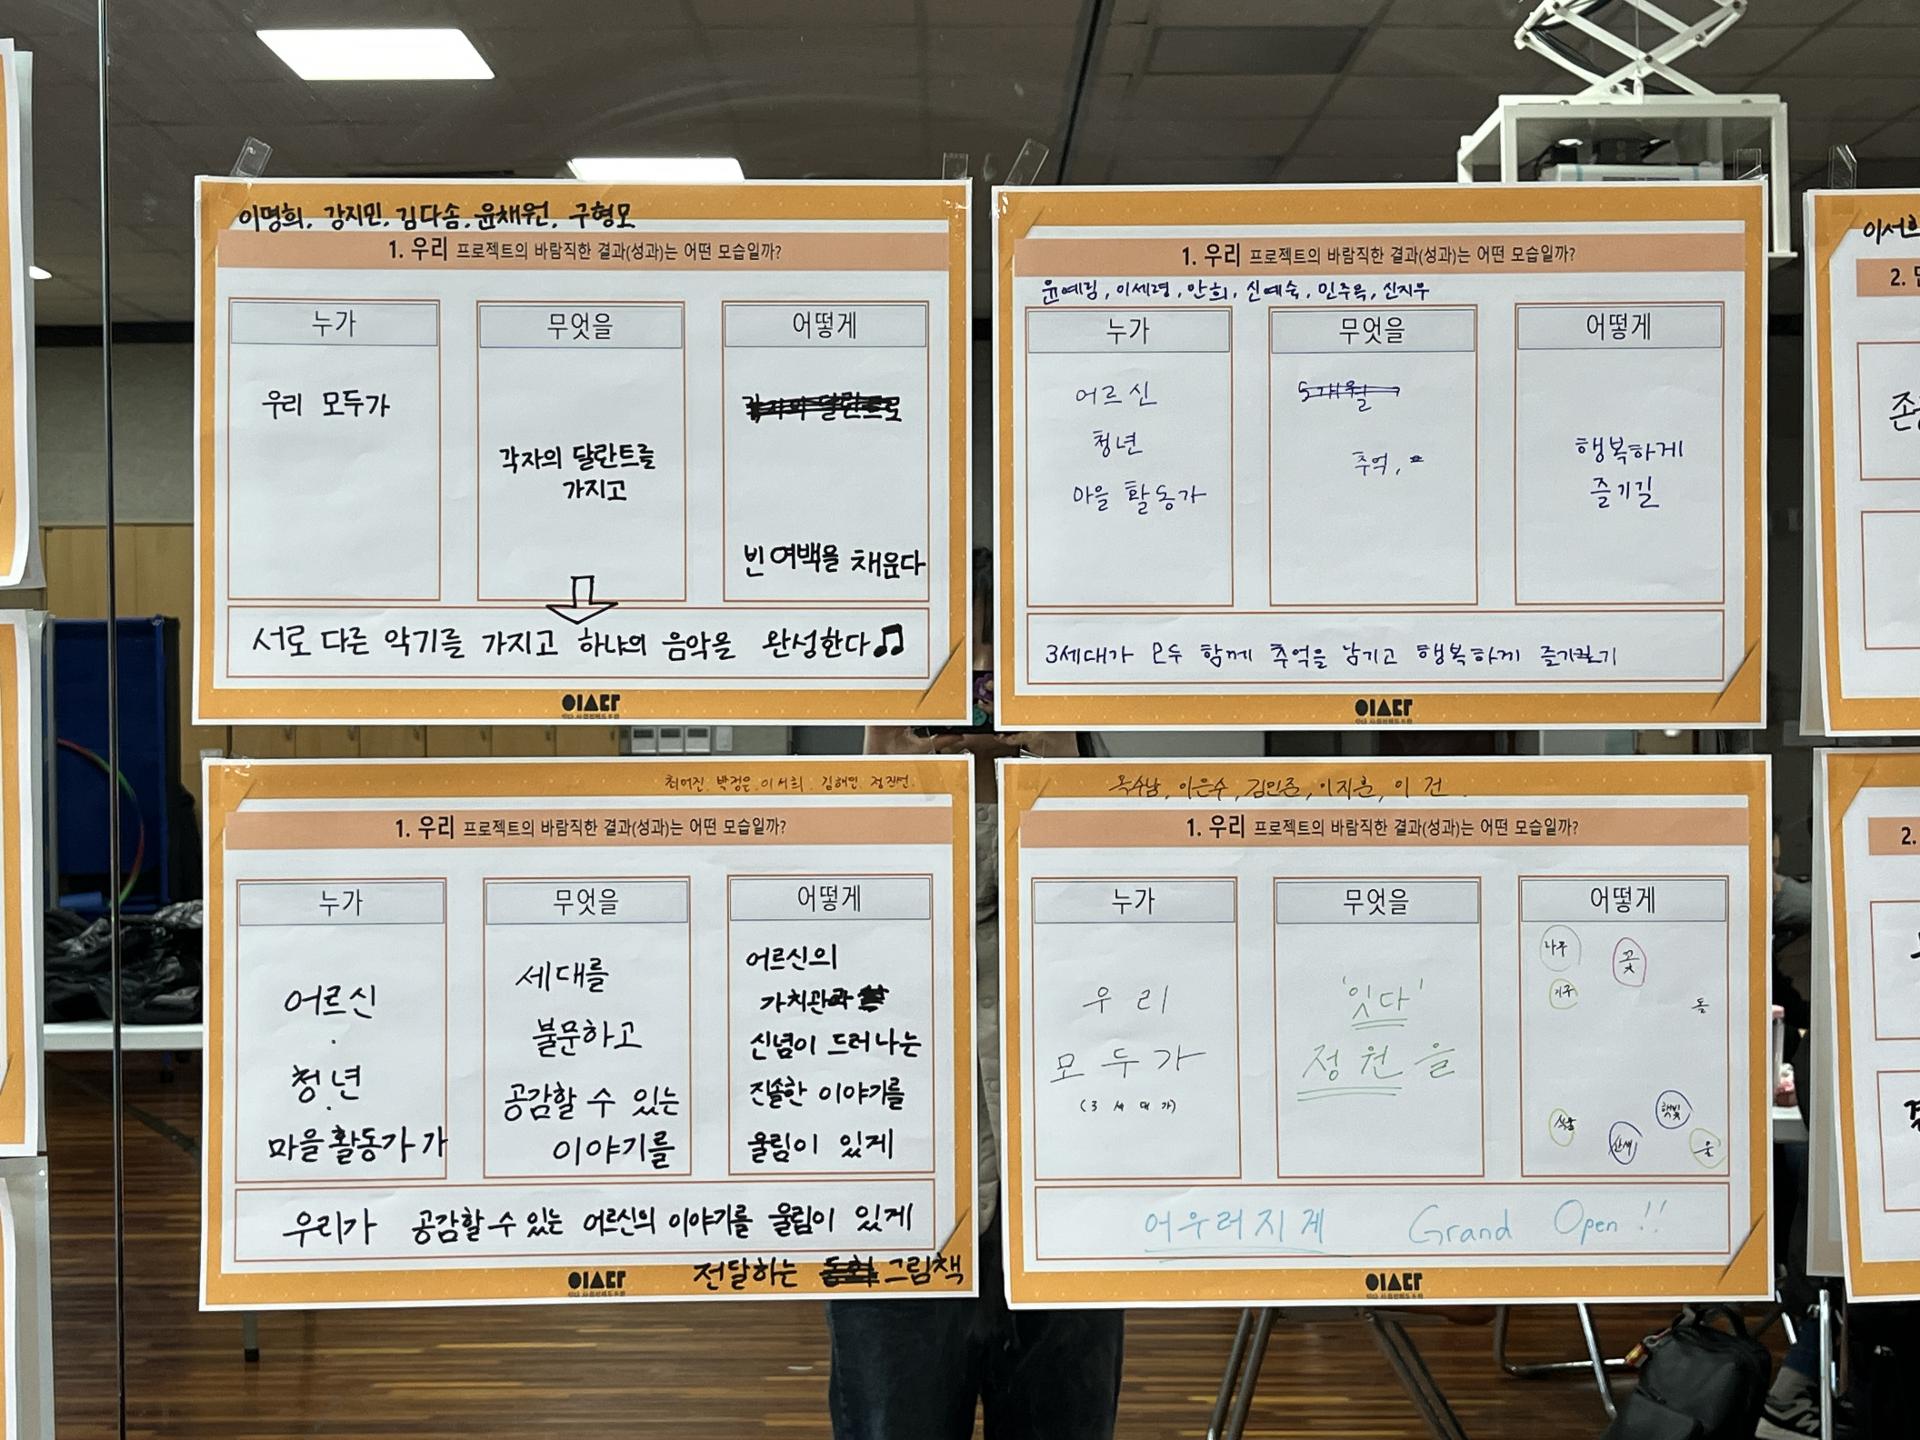 이명희, 강지민, 김다솜, 윤채원, 구형모
1. 우리 프로젝트의 바람직한 결과(성과)는 어떤 모습일까?
누가
우리 모두가
무엇을
각자의 달란트를
가지고
어떻게
각자의 달란트로
빈 여백을 채운다
서로 다른 악기를 가지고 하나의 음악을 완성한다♫
이스다
1. 우리 프로젝트의 바람직한 결과(성과)는 어떤 모습일까?
윤예림, 이세령, 안희, 신예숙, 민주옥, 신지우
누가
어르신
청년
마을 활동가
무엇을
5개월
추억,
어떻게
행복하게
즐기길
3세대가 모두 함께 추억을 남기고 행복하게 즐기기
이스다
최여진. 박정은. 이서희. 김해인. 정진선.
1. 우리 프로젝트의 바람직한 결과(성과)는 어떤 모습일까?
누가
어르신
·
청년
·
마을활동가가
무엇을
세대를
불문하고
공감할 수 있는
이야기를
어떻게
어르신의
가치관과
신념이 드러나는
진솔한 이야기를
울림이 있게
우리가 공감할 수 있는 어르신의 이야기를 울림이 있게
전달하는 그림책
이스다
옥수남, 이은수, 김민준, 이지훈, 이 건
1. 우리 프로젝트의 바람직한 결과(성과)는 어떤 모습일까?
누가
우리
모두가
(3세대가)
무엇을
'잇다'
정원을
어떻게
나무
꽃
돌
햇빛
산새
물
어우러지게 Grand Open!!
이스다
이서희
2.
존
2.